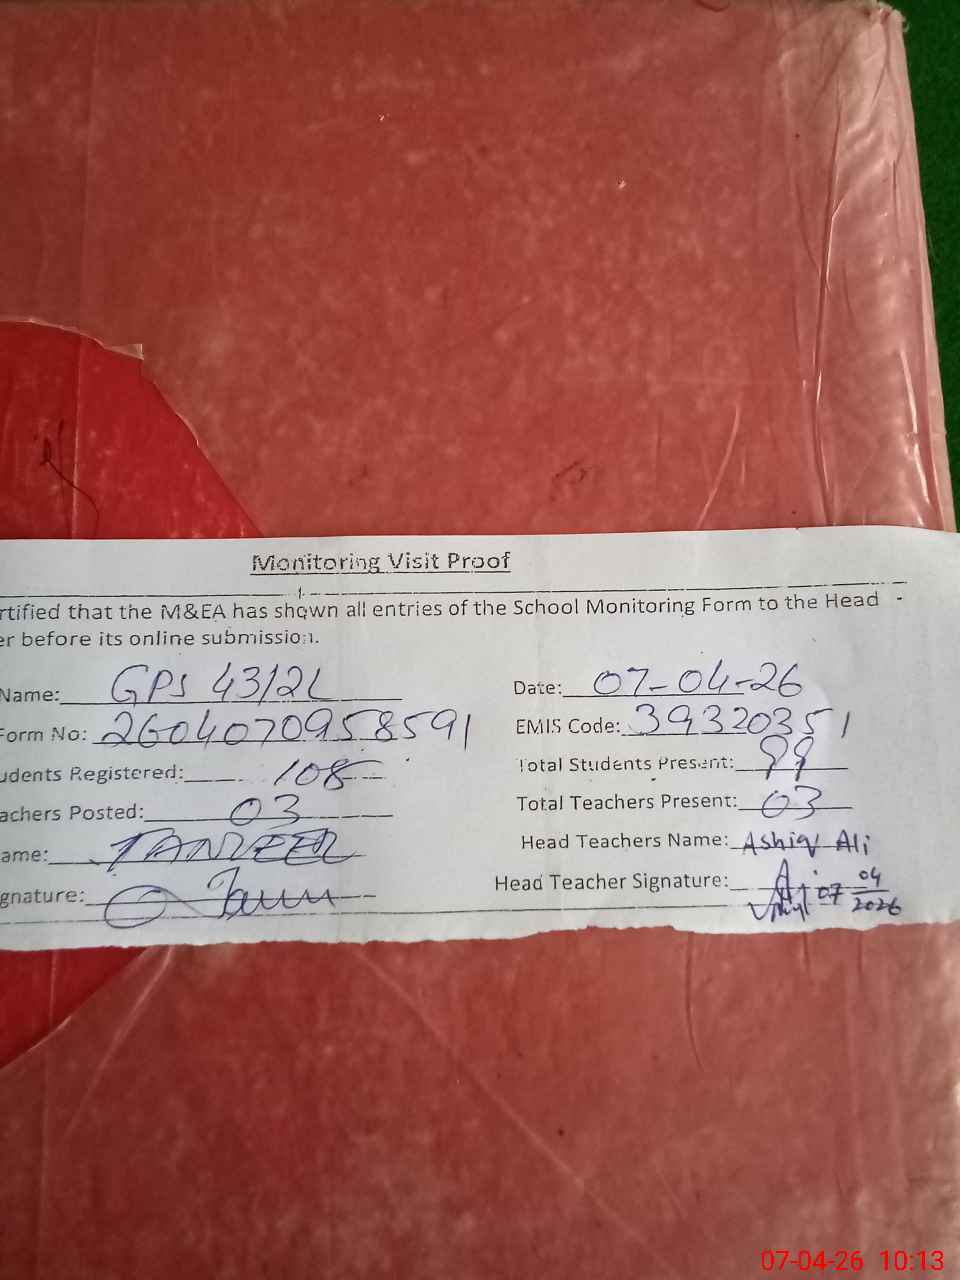 Monitoring Visit Proof
rtified that the M&EA has shown all entries of the School Monitoring Form to the Head
er before its online submission.
Name: GPS 43/2L Date: 07-04-26
Form No: 2604070958591 EMIS Code: 39320351
udents Registered: 108 Total Students Present: 99
achers Posted: 03 Total Teachers Present: 03
ame: TANVEER Head Teachers Name: Ashiq Ali
gnature: Head Teacher Signature: 07 04 2026
07-04-26 10:13